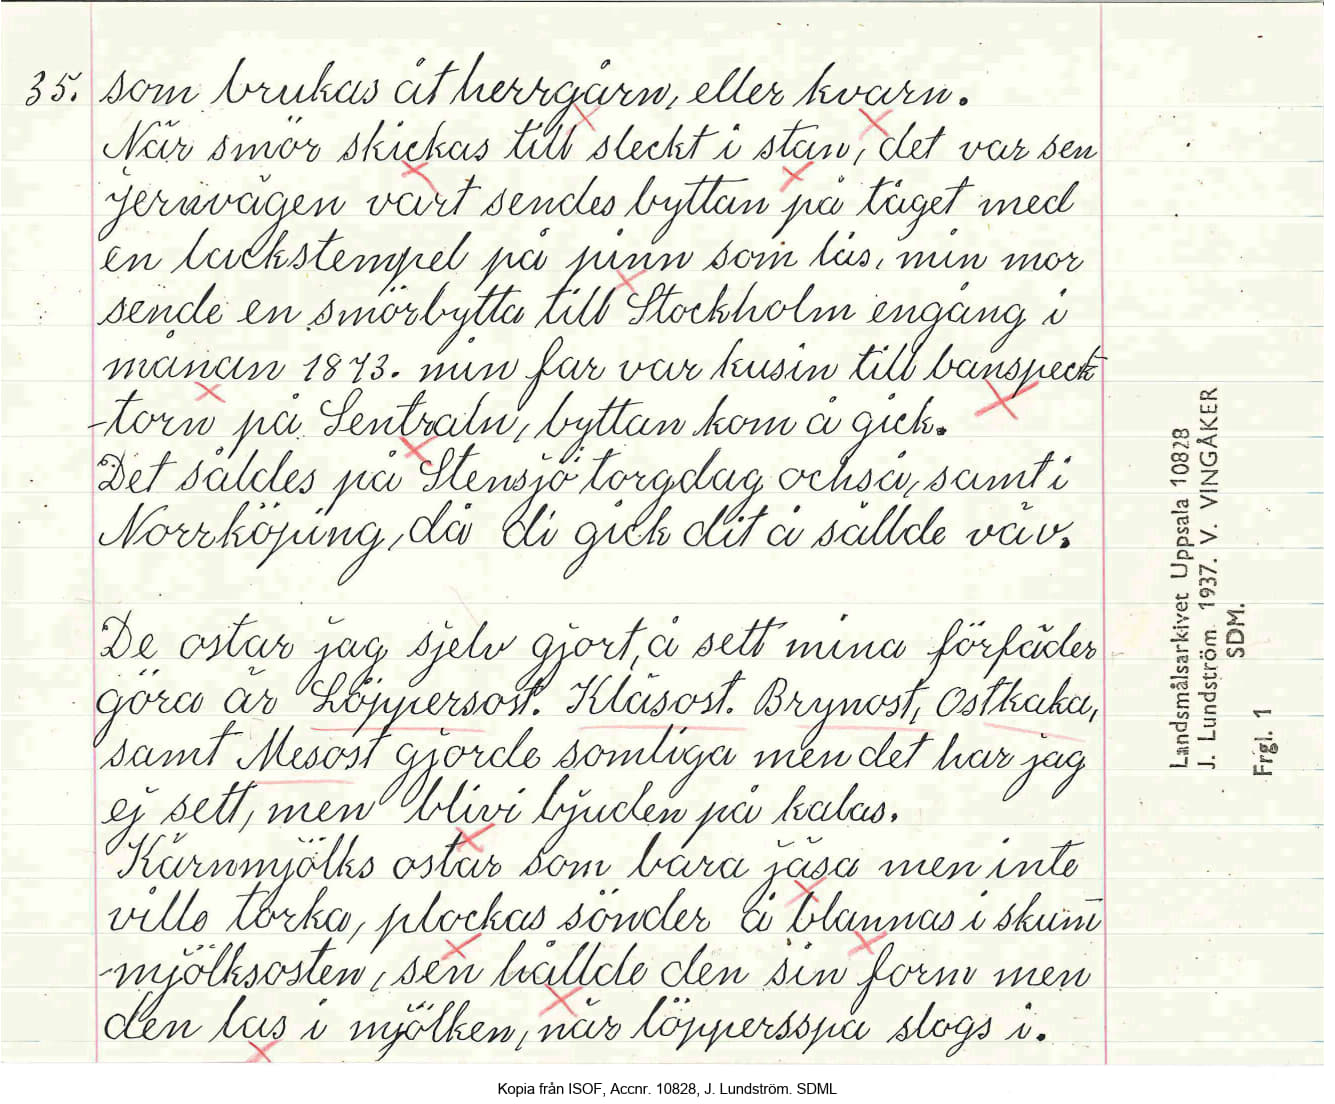 35. som brukas åt herrgårn, eller kvarn.
När smör skickas till sleckt i stan, det var sen
jernvägen vart sendes byttan på tåget med
en lackstempel på pinn som lås, min mor
sende en smörbytta till Stockholm engång i
månan 1873. min far var kusin till banspeck
-torn på Sentraln, byttan kom å gick.
Det såldes på Stensjö torgdag också, samt i
Norrköping, då di gick dit å sållde väv.
De ostar jag sjelv gjort, å sett mina förfäder
göra är Löppersost. Kläsost. Brynost, Ostkaka,
samt Mesost gjorde somliga men det har jag
ej sett, men blivi bjuden på kalas.
Kärnmjölks ostar som bara jäsa men inte
ville torka, plockas sönder å blannas i skum
-mjölksosten, sen hållde den sin form men
den las i mjölken, när löppersspa slogs i.
Landsmålsarkivet Uppsala 10828
J. Lundström 1937. V. VINGÅKER
SDM.
Frgl. 1
Kopia från ISOF, Accnr. 10828, J. Lundström. SDML